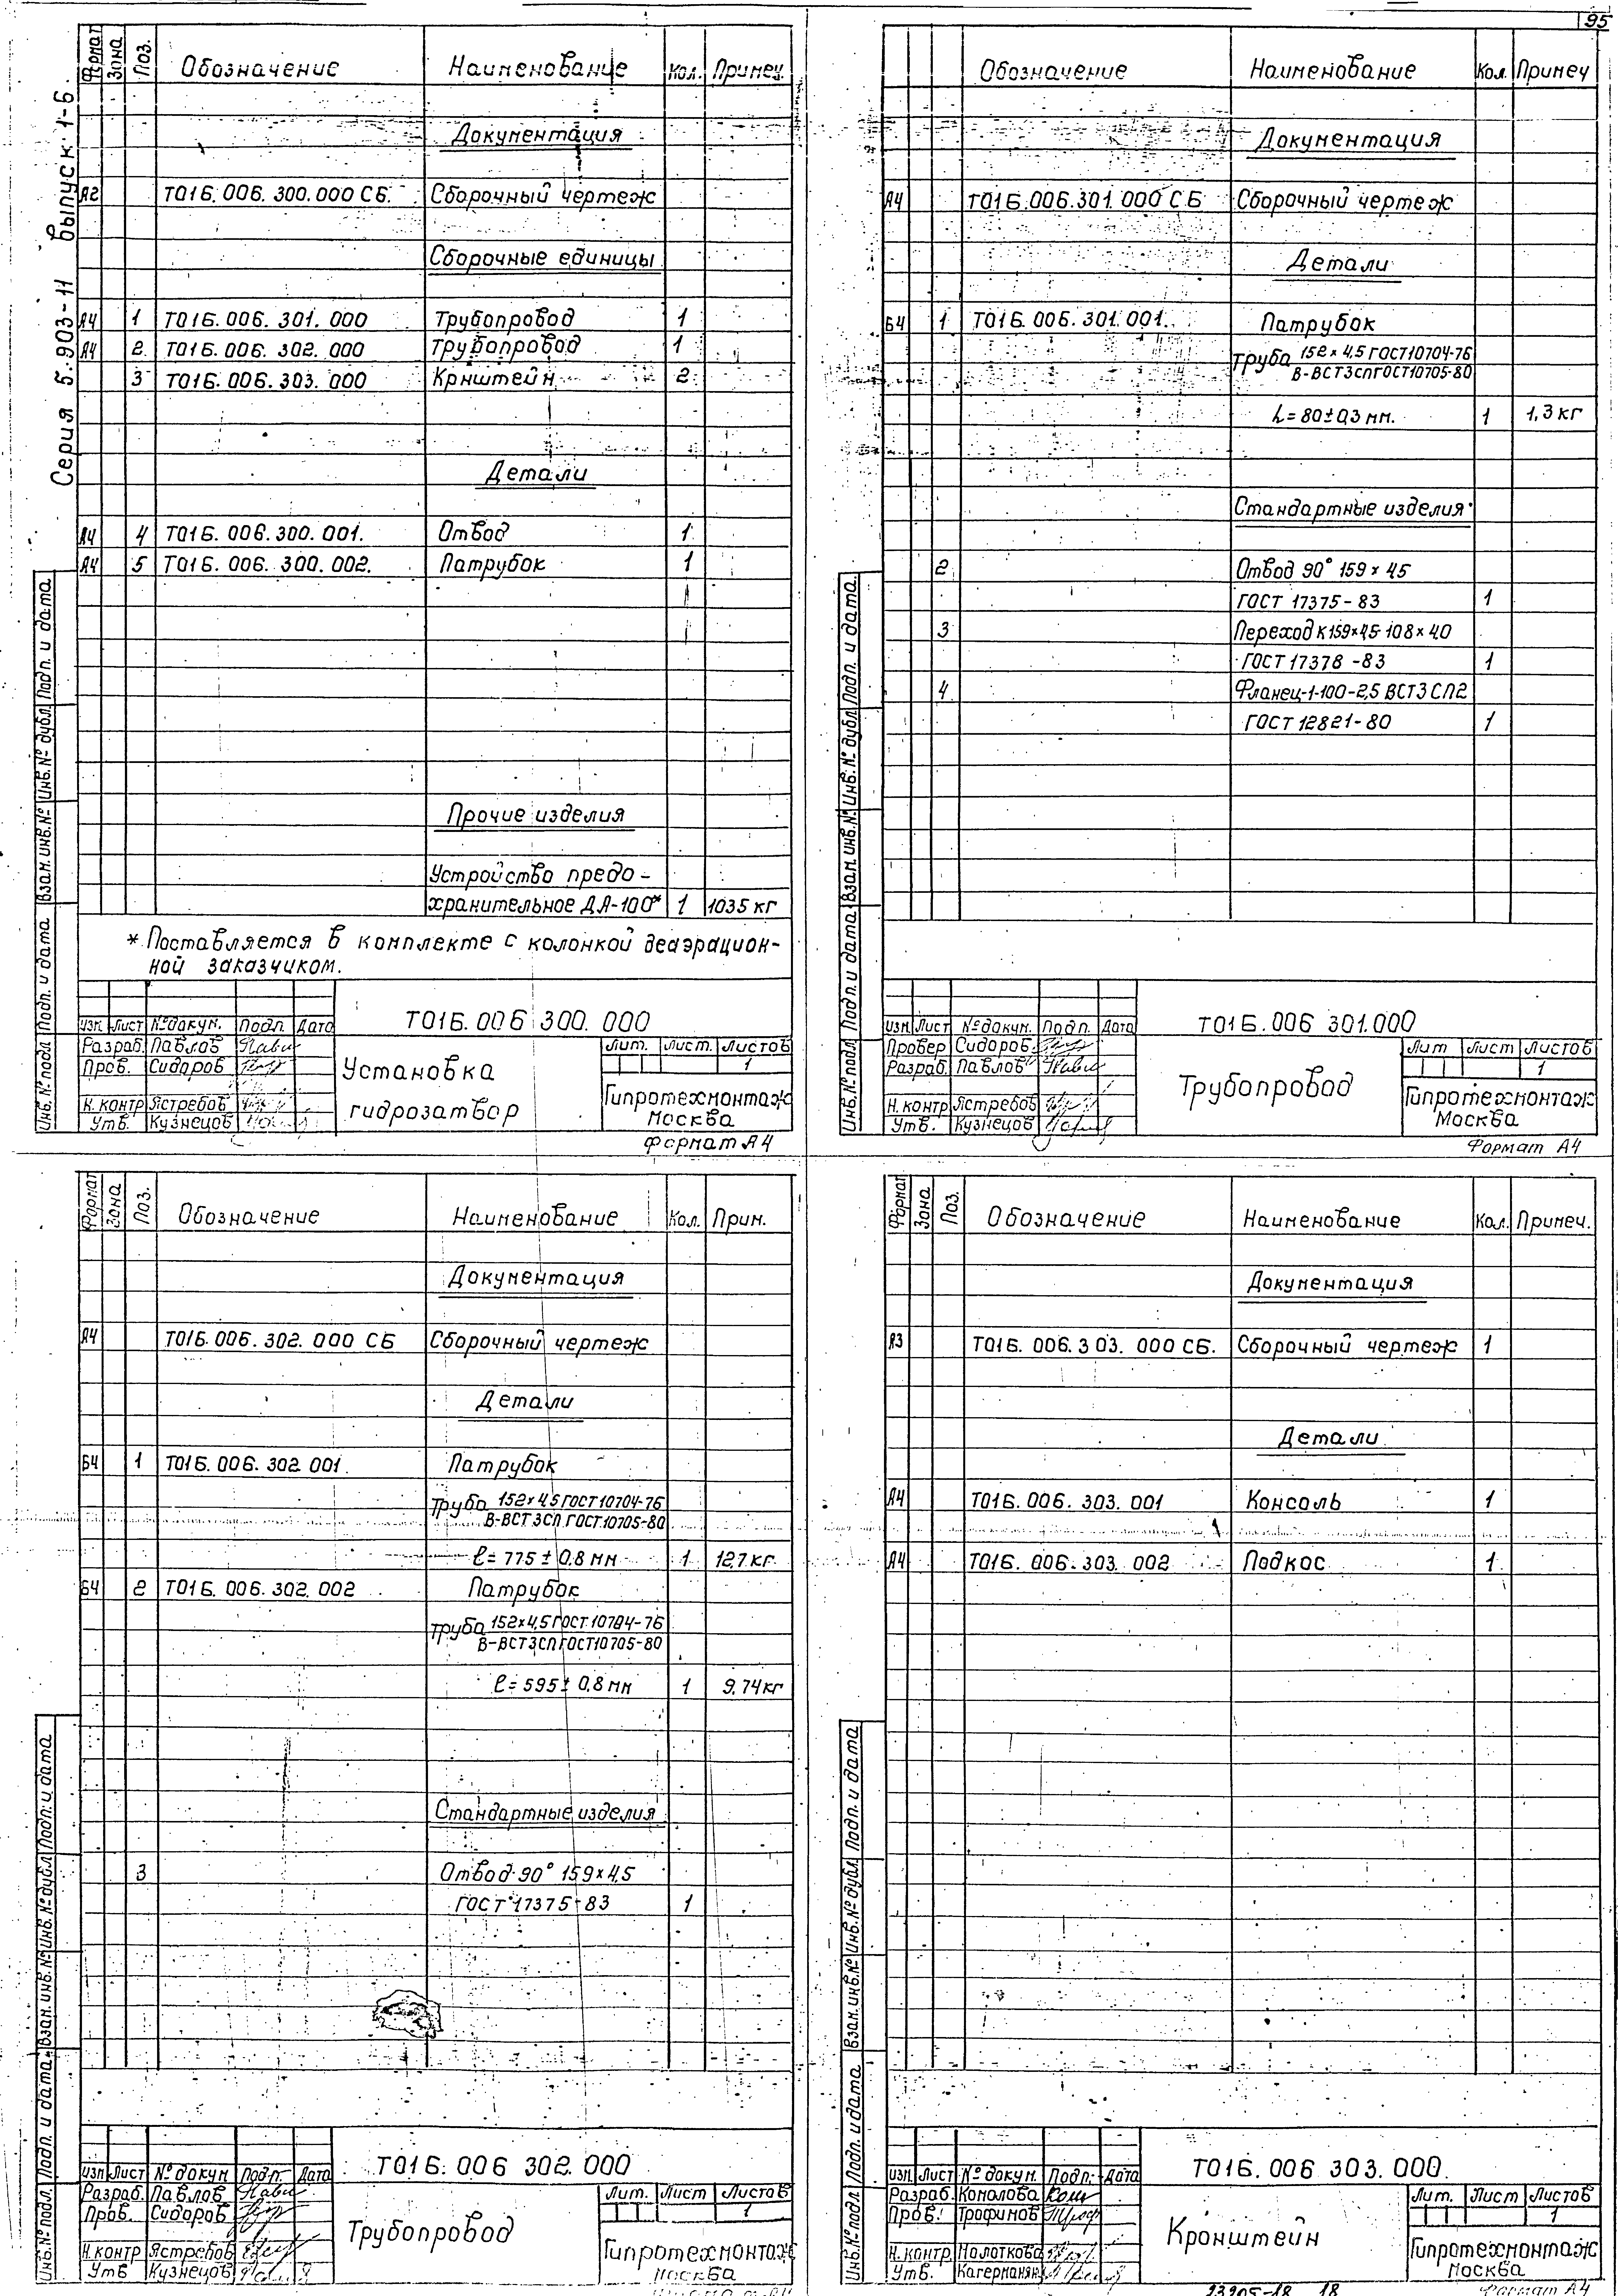 95
Серия 5.903-11 выпуск 1-6.
Формат Зона Поз. Обозначение Наименование Кол. Примеч.
Документация
А2 Т01Б.006.300.000 СБ. Сборочный чертеж
Сборочные единицы
А4 1 Т01Б.006.301.000 Трубопровод 1
А4 2 Т01Б.006.302.000 Трубопровод 1
3 Т01Б.006.303.000 Крнштейн 2
Детали
А4 4 Т01Б.006.300.001. Отвод 1
А4 5 Т01Б.006.300.002. Патрубок 1
Прочие изделия
Устройство предо-
хранительное ДА-100* 1 1035 кг
* Поставляется в комплекте с колонкой деаэрацион-
ной заказчиком.
Инв.№ подл Подп. и дата Взам.инв.№ Инв.№ дубл Подп. и дата
Т01Б.006 300.000
Изм. Лист № докум. Подп Дата
Разраб. Павлов
Пров. Сидоров
Н.контр Ястребов
Утв. Кузнецов
Установка
гидрозатвор
Лит. Лист. Листов
1
Гипротехмонтаж
Москва
Формат А4
Обозначение Наименование Кол. Примеч
Документация
А4 Т01Б.006.301.000 СБ Сборочный чертеж
Детали
Б4 1 Т01Б.006.301.001. Патрубок
Труба 152×4,5 ГОСТ10704-76
В-ВСТ3сп ГОСТ10705-80
L=80±0,3 мм. 1 1,3 кг
Стандартные изделия
2 Отвод 90° 159×45
ГОСТ 17375-83 1
3 Переход К159×45-108×40
ГОСТ 17378-83 1
4 Фланец-1-100-2,5 ВСТ3СП2
ГОСТ 12821-80 1
Инв.№ подл Подп. и дата Взам.инв.№ Инв.№ дубл Подп. и дата
Т01Б.006 301.000
Изм. Лист № докум. Подп. Дата
Провер Сидоров
Разраб. Павлов
Н.контр Ястребов
Утв. Кузнецов
Трубопровод
Лит Лист Листов
1
Гипротехмонтаж
Москва
Формат А4
Формат Зона Поз. Обозначение Наименование Кол. Прим.
Документация
А4 Т01Б.006.302.000 СБ Сборочный чертеж
Детали
Б4 1 Т01Б.006.302 001. Патрубок
Труба 152×4,5 ГОСТ10704-76
В-ВСТ3СП ГОСТ10705-80
ℓ=775±0,8 мм 1 12,7 кг.
Б4 2 Т01Б.006.302.002 Патрубок
Труба 152×4,5 ГОСТ 10704-76
В-ВСТ3СП ГОСТ10705-80
ℓ=595±0,8 мм 1 9,74 кг
Стандартные изделия
3 Отвод 90° 159×4,5
ГОСТ 17375-83 1
Инв.№ подл. Подп. и дата Взам.инв.№ Инв.№ дубл Подп. и дата
Т01Б.006 302.000
Изм Лист № докум Подп. Дата
Разраб. Павлов
Пров. Сидоров
Н.контр Ястребов
Утв Кузнецов
Трубопровод
Лит. Лист Листов
1
Гипротехмонтаж
Москва
Формат Зона Поз. Обозначение Наименование Кол. Примеч.
Документация
А3 Т01Б.006.303.000 СБ. Сборочный чертеж 1
Детали
А4 Т01Б.006.303.001 Консоль 1
А4 Т01Б.006.303.002 Подкос 1
Инв.№ подл Подп. и дата Взам.инв.№ Инв.№ дубл Подп. и дата
Т01Б.006 303.000
Изм. Лист № докум. Подп. Дата
Разраб. Коналова
Пров. Трофимов
Н.контр. Малоткова
Утв. Кагерманян
Кронштейн
Лит. Лист Листов
1
Гипротехмонтаж
Москва
23905-18 18
Формат А4